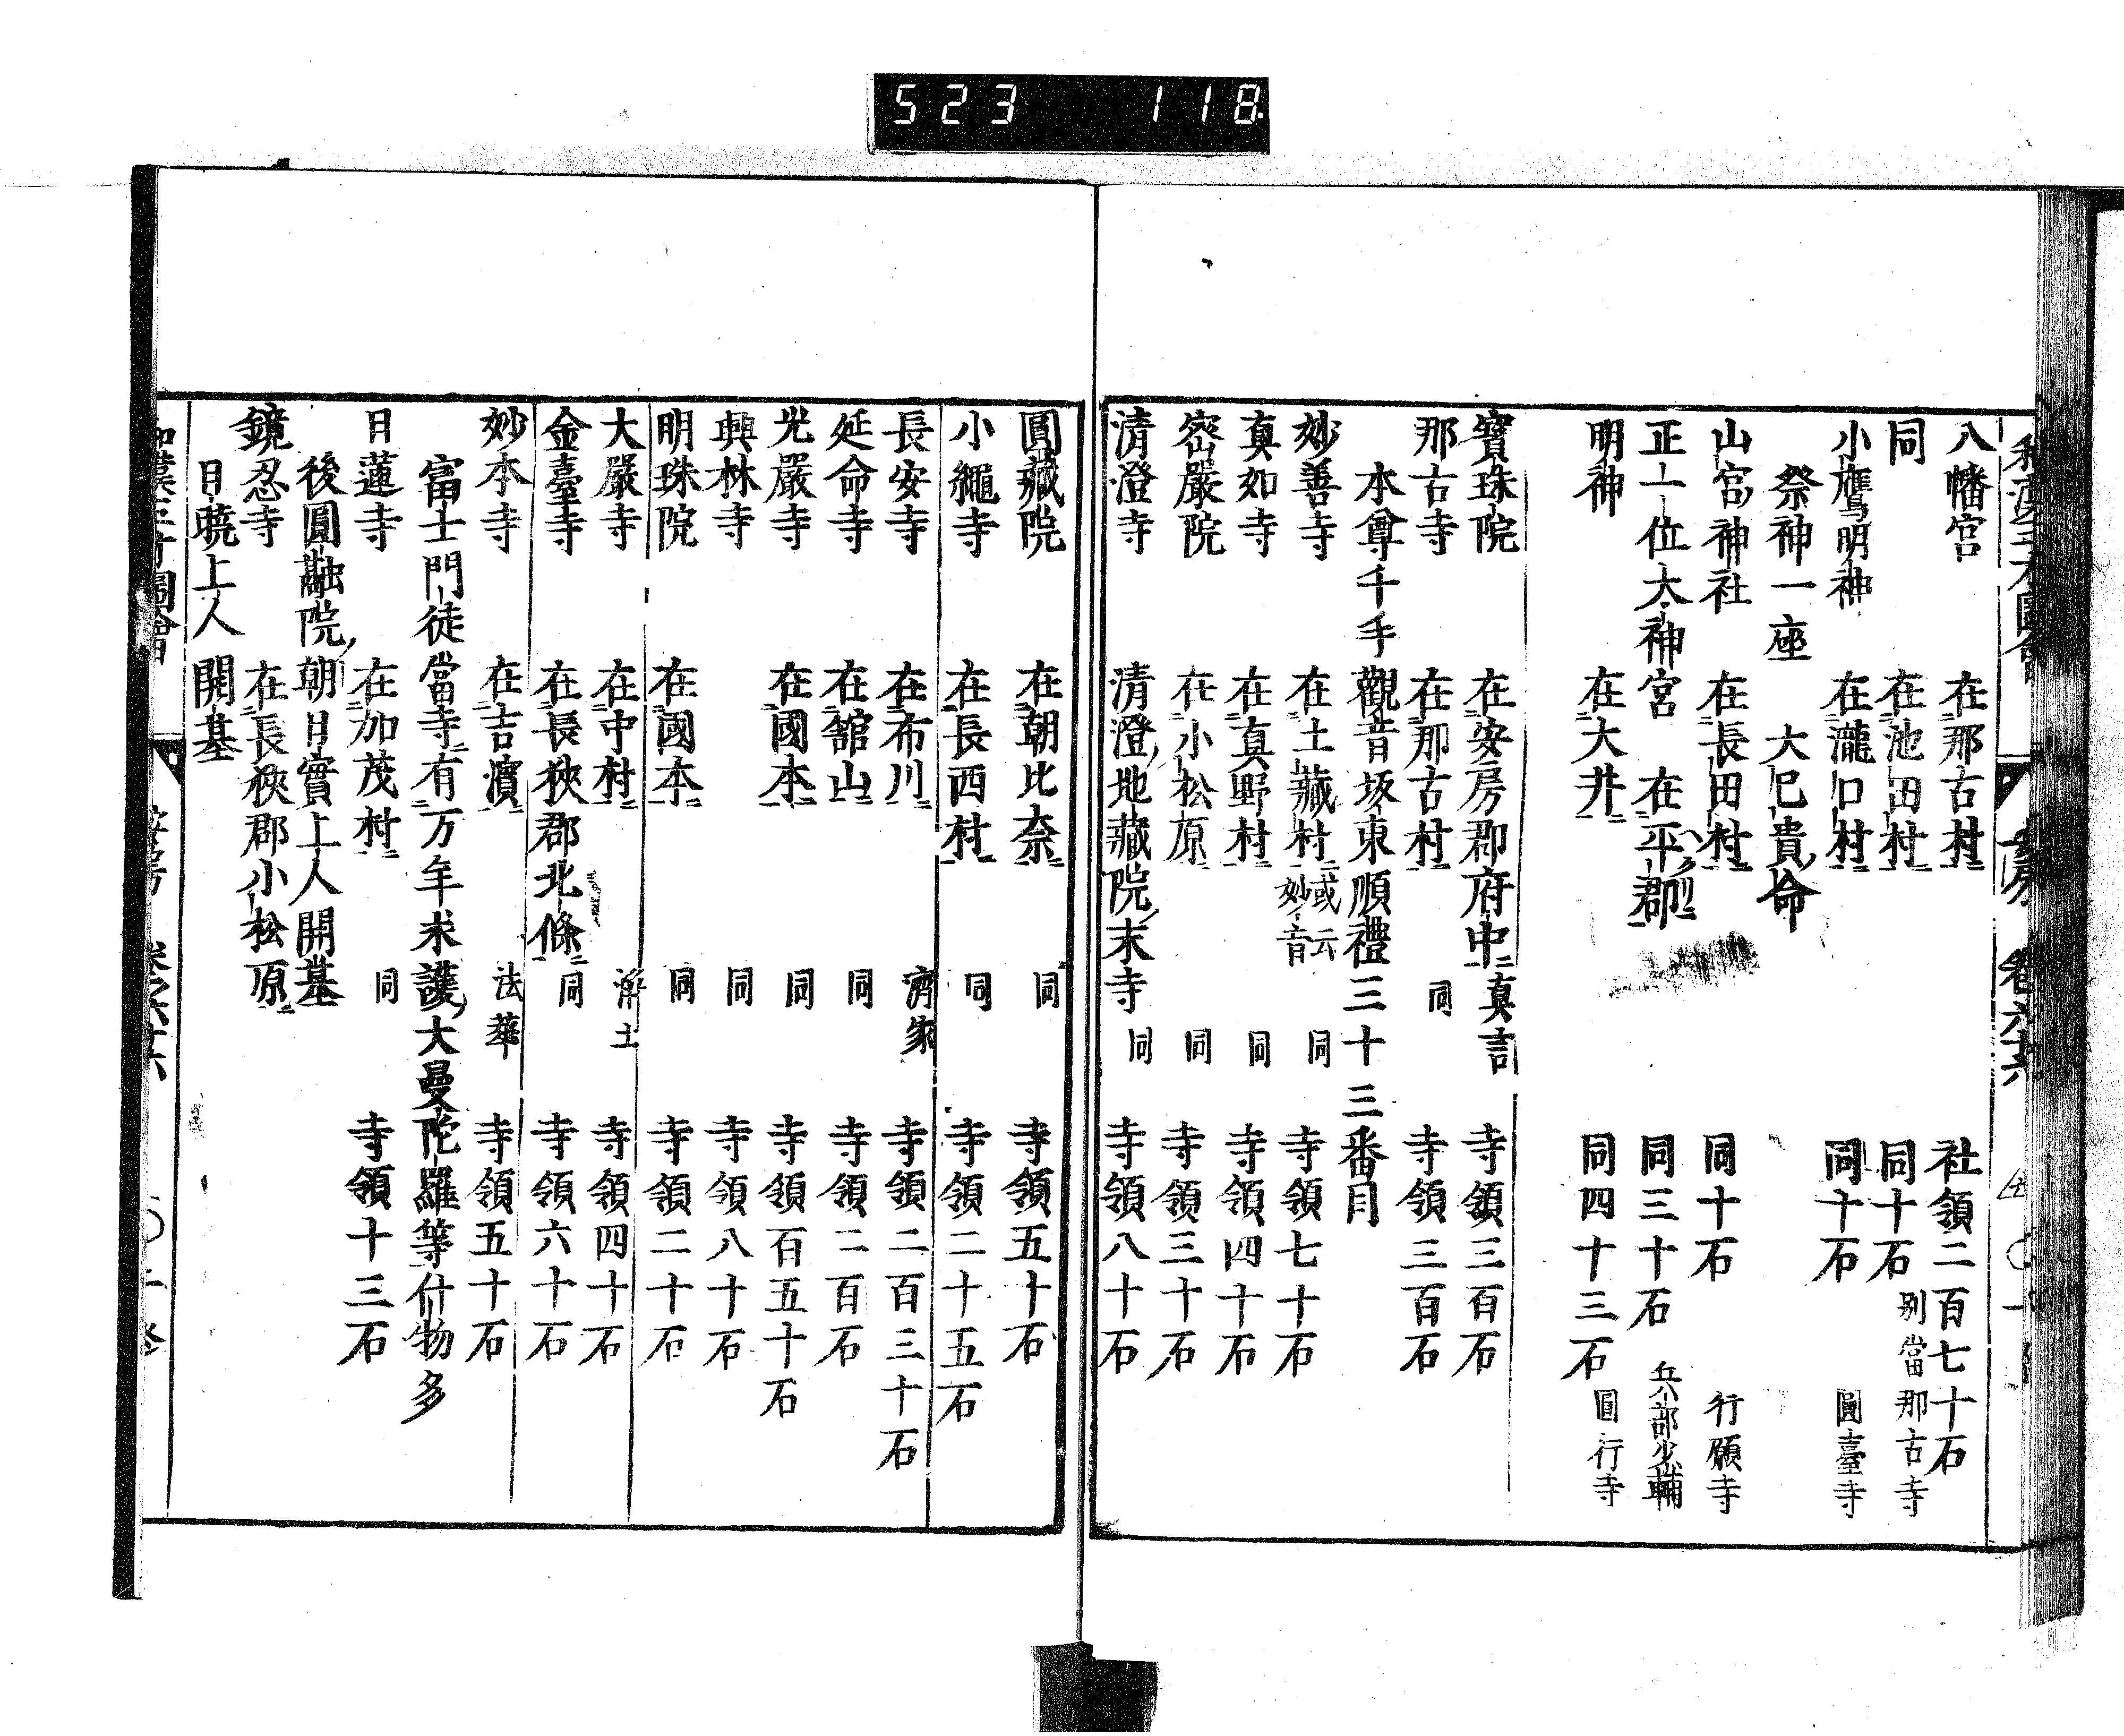 523 118
八幡宮 在那古村 社領二百七十石
同 在池田村 同十石 別當那古寺
小鷹明神 在瀧口村 同十石 圓臺寺
祭神一座 大巳貴命
山宮神社 在長田村 同十石 行願寺
正一位大神宮 在平郡 同三十石 兵部少輔
明神 在大井 同四十三石 圓行寺
寶珠院 在安房郡府中 真言 寺領三百石
那古寺 在那古村 同 寺領三百石
本尊千手觀音坂東順禮三十三番目
妙善寺 在土藏村 或云妙音 同 寺領七十石
真如寺 在真野村 同 寺領四十石
密嚴院 在小松原 同 寺領三十石
清澄寺 清澄地藏院末寺 同 寺領八十石
圓藏院 在朝比奈 同 寺領五十石
小繩寺 在長西村 同 寺領二十五石
長安寺 在布川 濟家 寺領二百三十石
延命寺 在舘山 同 寺領二百石
光嚴寺 在國本 同 寺領百五十石
興林寺 同 寺領八十石
明珠院 在國本 同 寺領二十石
大嚴寺 在中村 淨土 寺領四十石
金臺寺 在長狹郡北條 同 寺領六十石
妙本寺 在吉濱 法華 寺領五十石
富士門徒當寺有万年求護大曼陀羅等什物多
日蓮寺 在加茂村 同 寺領十三石
後圓融院朝日實上人開基
鏡忍寺 在長狹郡小松原
日曉上人開基